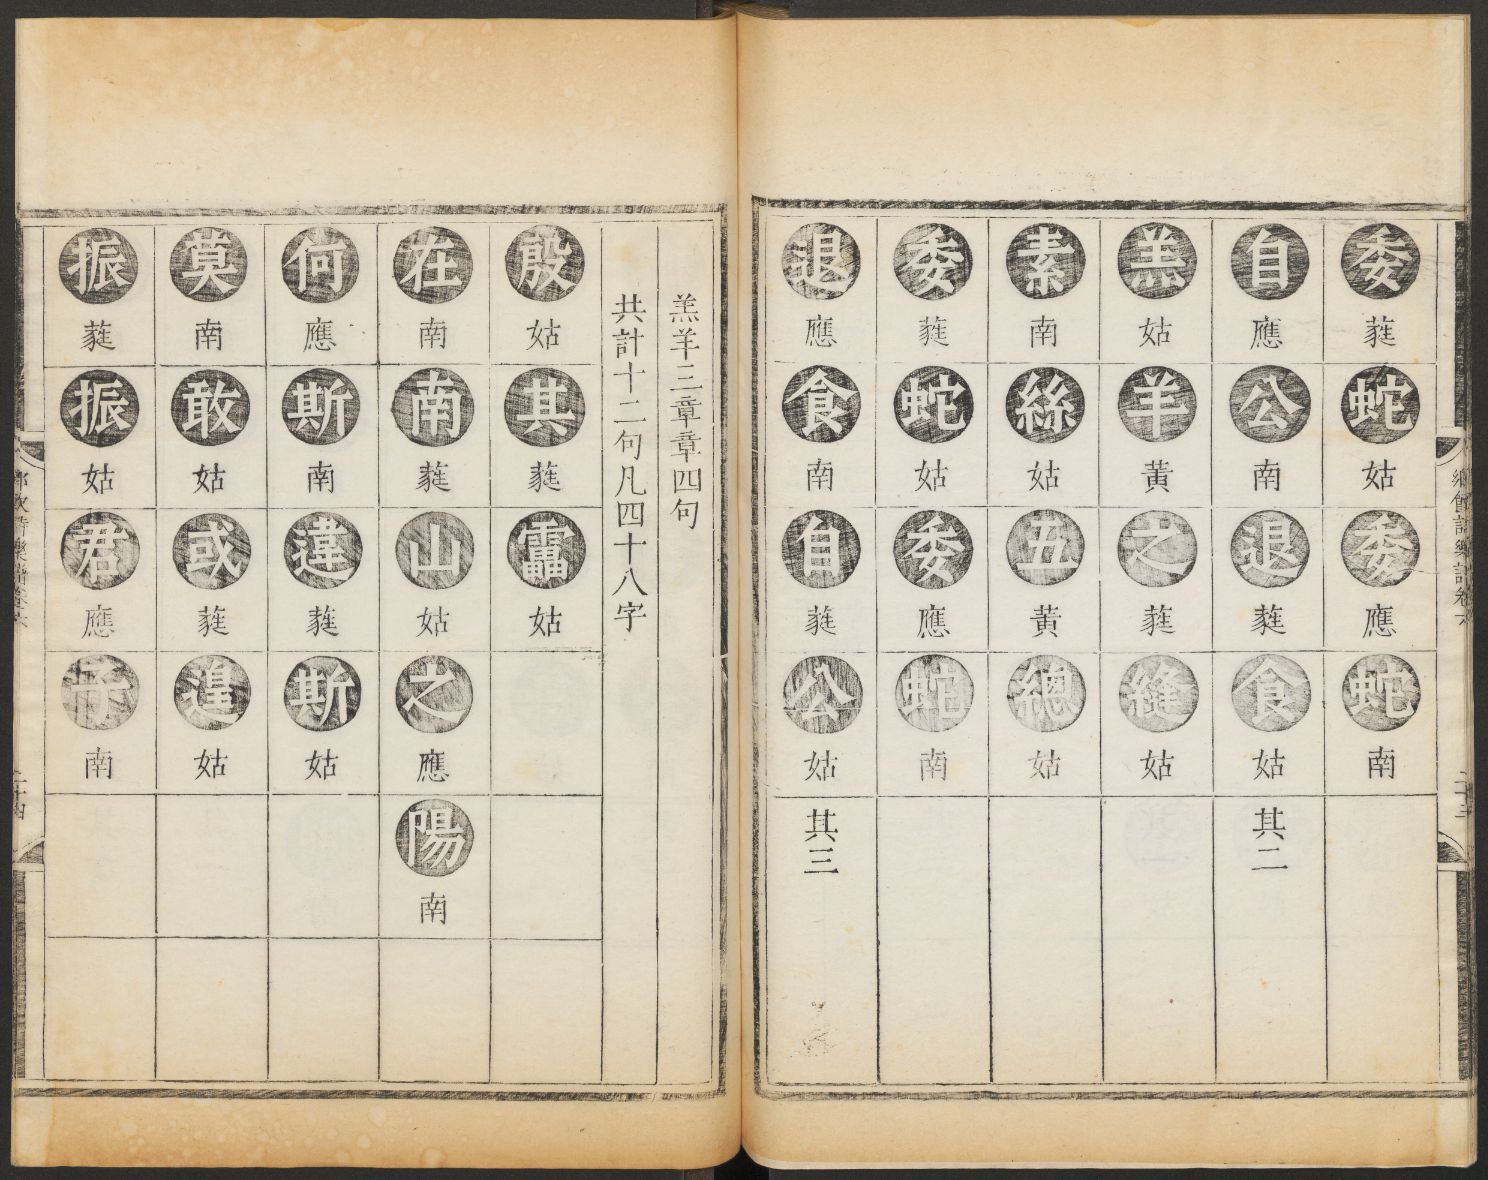 鄉飲詩樂譜卷六 二十三
委蕤蛇姑委應蛇南
自應公南退蕤食姑其二
羔姑羊黃之蕤縫姑
素南絲姑五黃總姑
委蕤蛇姑委應蛇南
退應食南自蕤公姑其三
羔羊三章章四句
共計十二句凡四十八字
殷姑其蕤靁姑
在南南蕤山姑之應陽南
何應斯南違蕤斯姑
莫南敢姑或蕤遑姑
振蕤振姑君應子南
鄉飲詩樂譜卷六 二十四